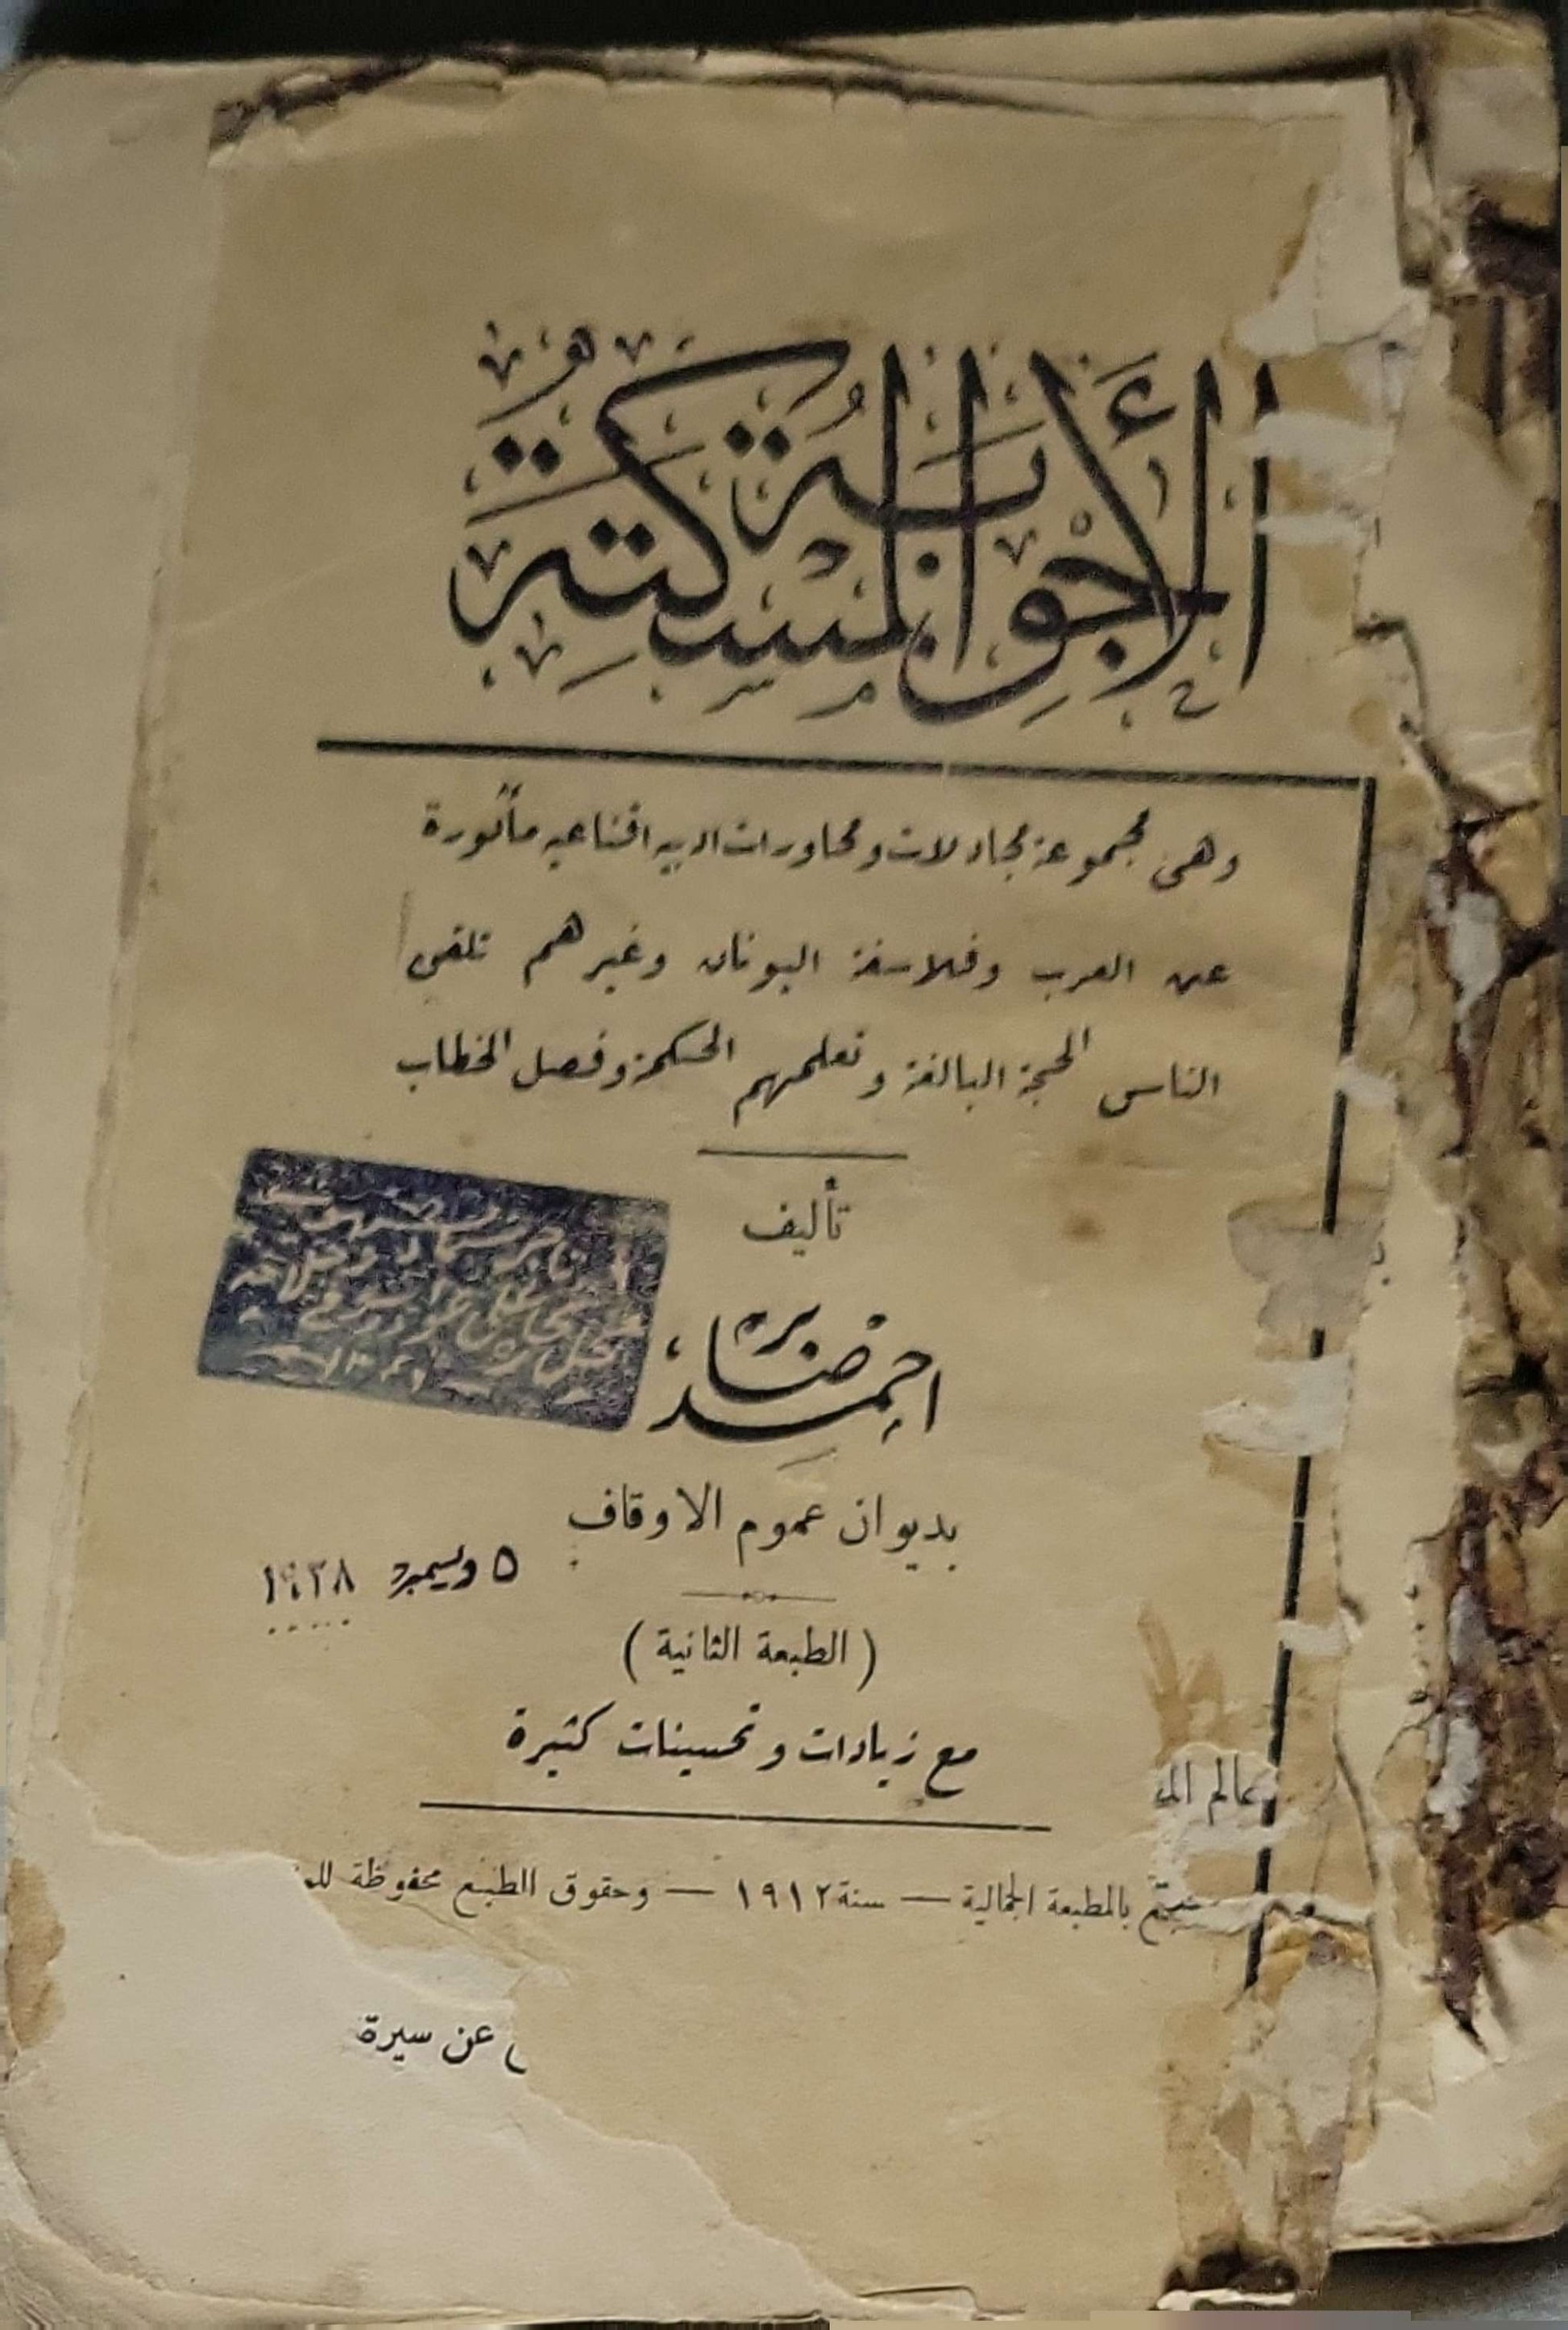 الأَجوِبَةُ المُسْكِتَةُ
وهى مجموعة مجادلات ومحاورات ادبية اقناعية مأثورة
عن العرب وفلاسفة اليونان وغيرهم تلقى
الناس الحجة البالغة وتعلمهم الحكمة وفصل الخطاب
تأليف
احمد صابر
بديوان عموم الاوقاف
٥ ديسمبر ١٩٣٨
( الطبعة الثانية )
مع زيادات وتحسينات كثيرة
عالم
بالمطبعة الجمالية — سنة ١٩١٢ — وحقوق الطبع محفوظة
عن سيرة